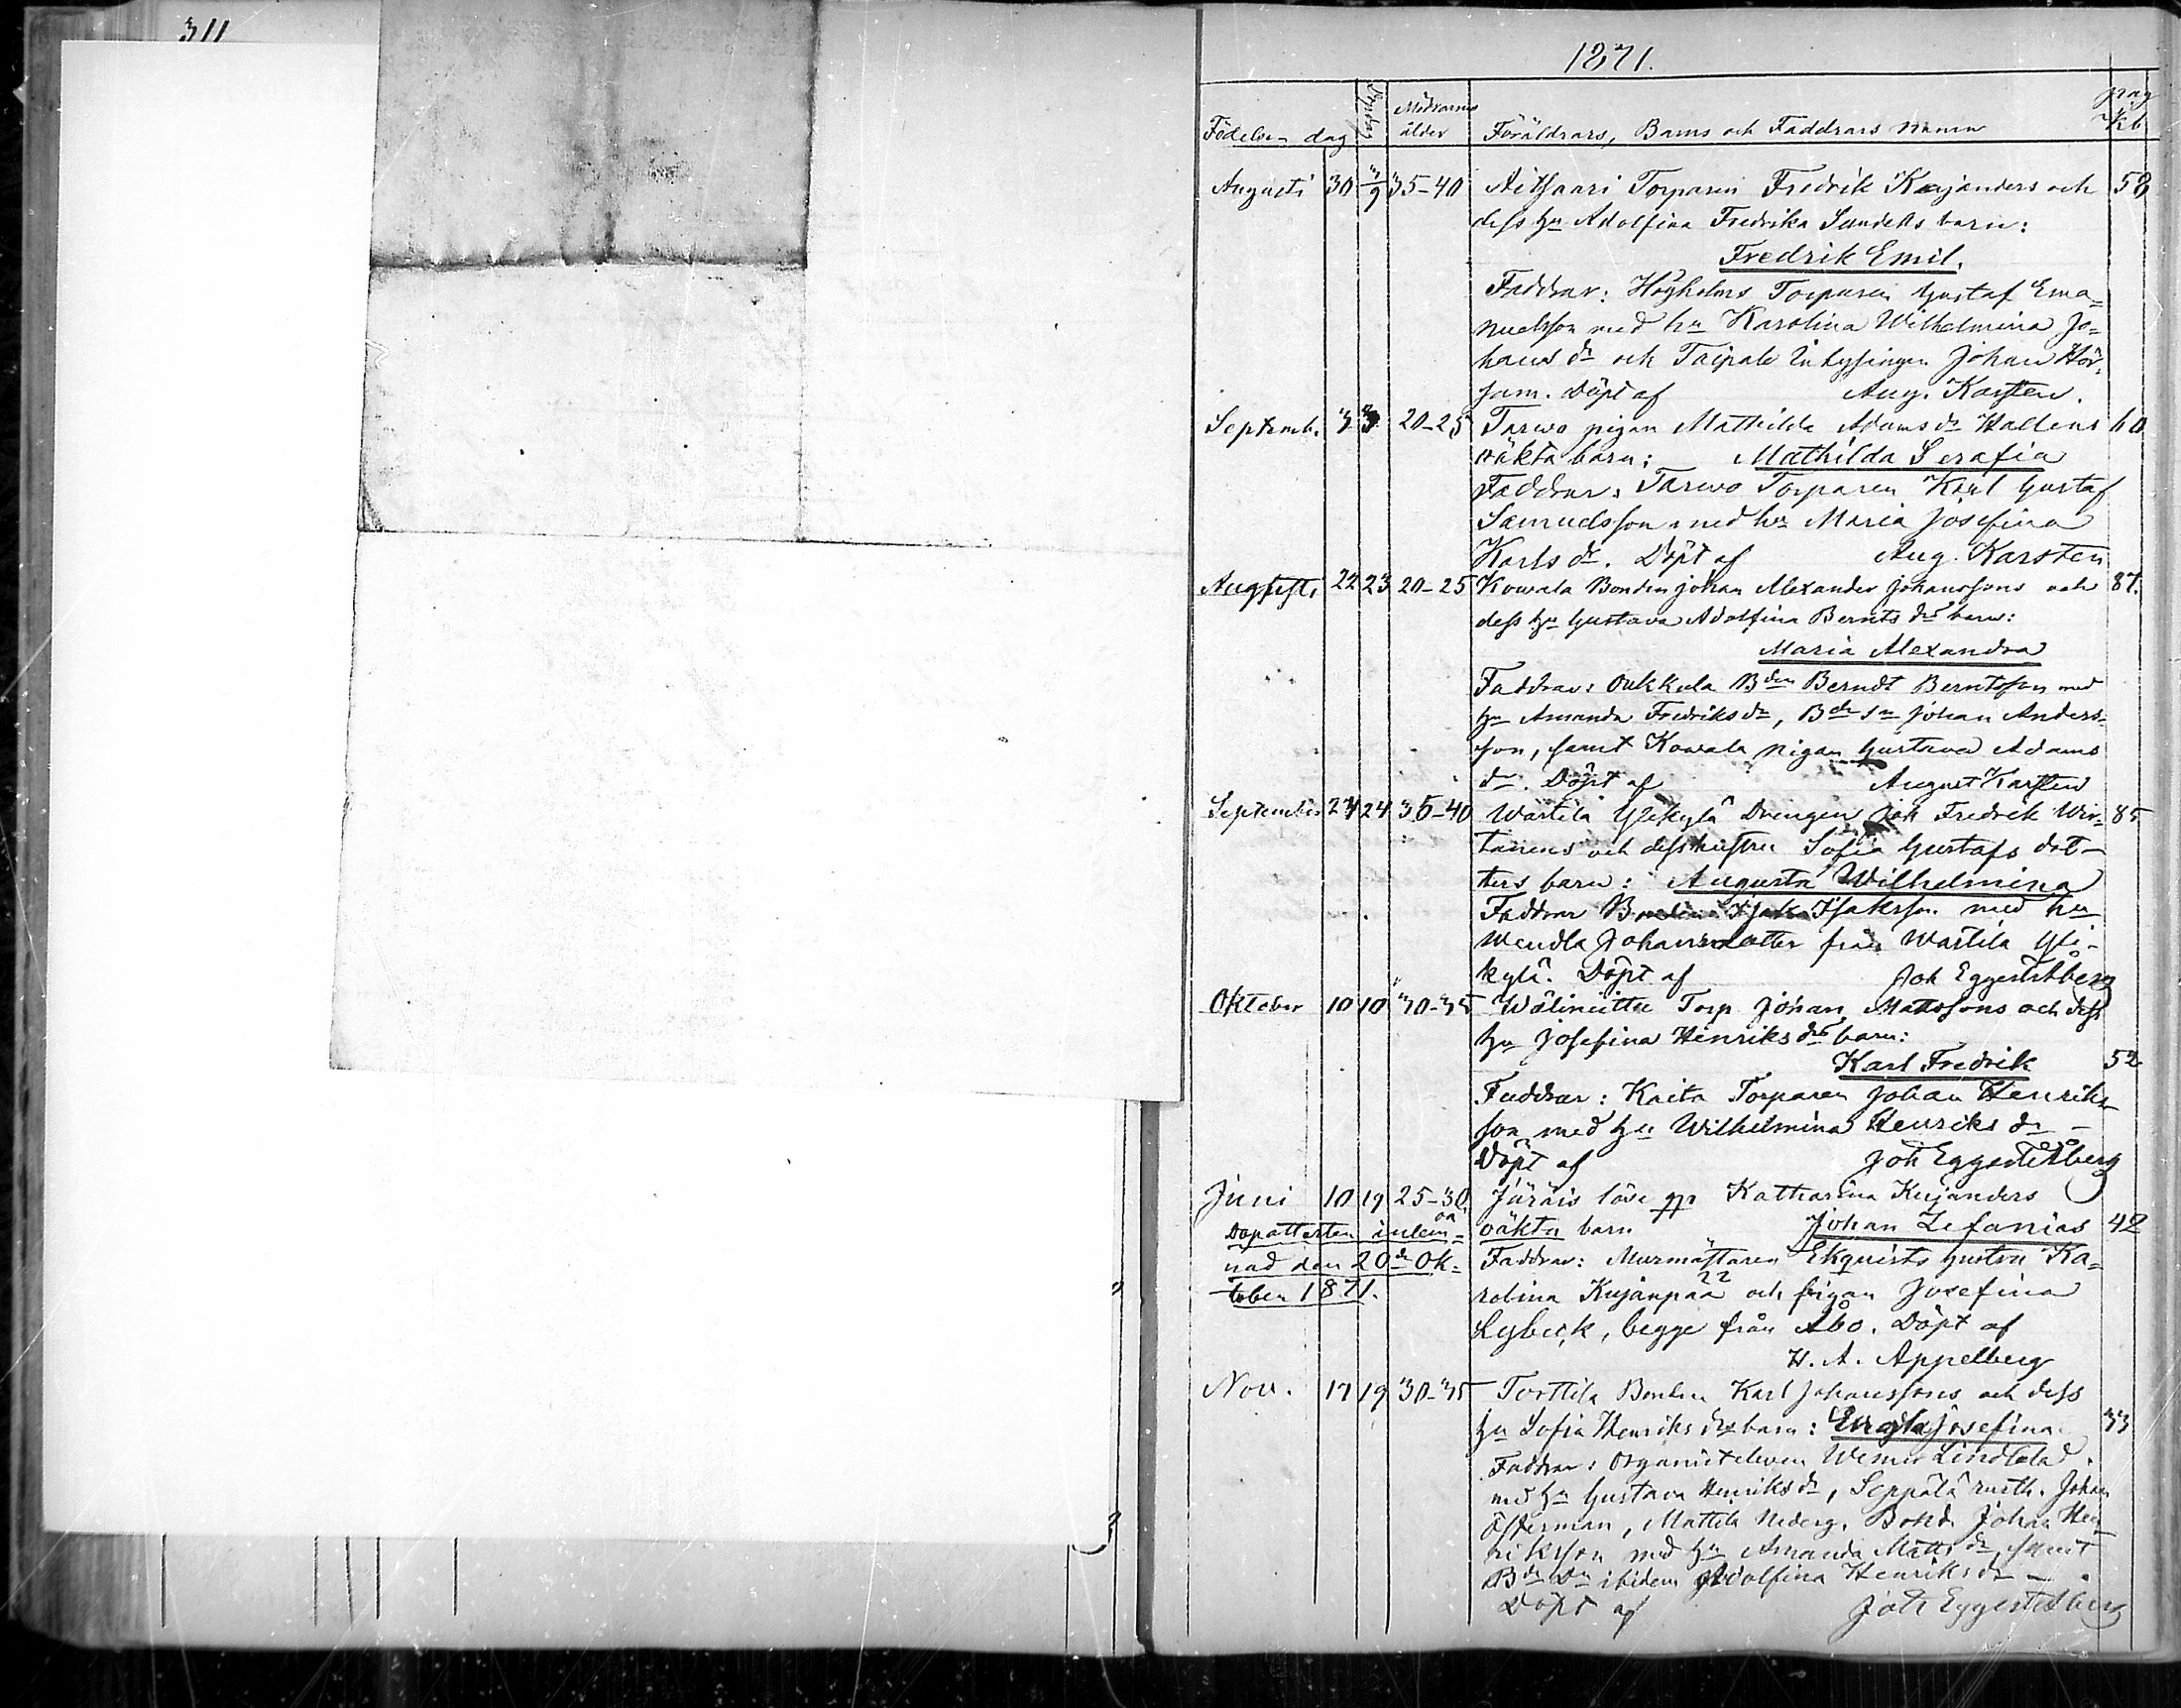 311
1871.
Födelse dag Mödrarnes ålder Föräldrars, Barns och Faddrars namn pag Kb
Augusti 30 3/9 35-40 Torparen Fredrik Kajanders och 58
dess hu Adolfina Fredrika Sundells barn:
Fredrik Emil.
Faddrar: Högholms Torparen Gustaf Ema=
nuelsson med hu Karolina Wilhelmina Jo=
hans dr och Taipale Inhysingen Johan Hör=
sam. Döpt af Aug. Karsten.
Septemb. 3 3 20-25 Tarwo pigan Mathilda Adams dr Hallens 60
oäkta barn: Mathilda Serafia
Faddrar: Tarwo Torparen Karl Gustaf
Samuelsson med hu Maria Josefina
Karls dr. Döpt af Aug. Karsten
Augusti 22 23 20-25 Kowala Bonden Johan Alexander Johanssons och 87.
dess hu Gustava Adolfina Bernts drs barn:
Maria Alexandra
Faddrar: Oukkula Bden Berndt Berntsson med
hu Amanda Fredriks dr, Bde sn Johan Anders=
son, samt Kowala pigan Gustava Adams
dr. Döpt af August Karsten
September 24 24 35-40 Wartila Ylikylä Drengen Joh Fredrik Wir= 85
tanens och dess hustru Sofia Gustafs dot-
ters barn: Augusta Wilhelmina
Faddrar Isaksson med hu
Wendla Johansdotter från Wartila Yli-
kylä. Döpt af Joh Eggertsberg
Oktober 10 10 30-35 Torp Johan Mattssons och dess
hu Josefina Henriks drs barn:
Karl Fredrik 52
Faddrar: Kaita Torparen Johan Henriks-
son med hu Wilhelmina Henriks dr -
Döpt af Joh Eggertsberg
Juni 10 19 25-30 Järäis löse qp Katharina Kujanders
Dopattesten inlem= oäkta barn Johan Zefanias 42
nad den 20de Ok= Faddrar: Murmästaren Ekquists hustru Ka=
tober 1871. rolina Kujanpää och pigan Josefina
Lybeck, begge från Åbo. Döpt af
H. A. Appelberg
Nov. 17 19 30-35 Torttila Bonden Karl Johanssons och dess
hu Sofia Henriks drs barn: Josefina 33
Faddrar: Organisteleven Werner Lindblad
med hu Gustava Henriks dr, Seppälä rusth. Johan
Österman, Mattila Nederg. Bond. Johan Hen=
riksson med hu Amanda Matts dr, samt
Bde Dr ibidem Adolfina Henriks dr -
Döpt af Joh Eggertsberg